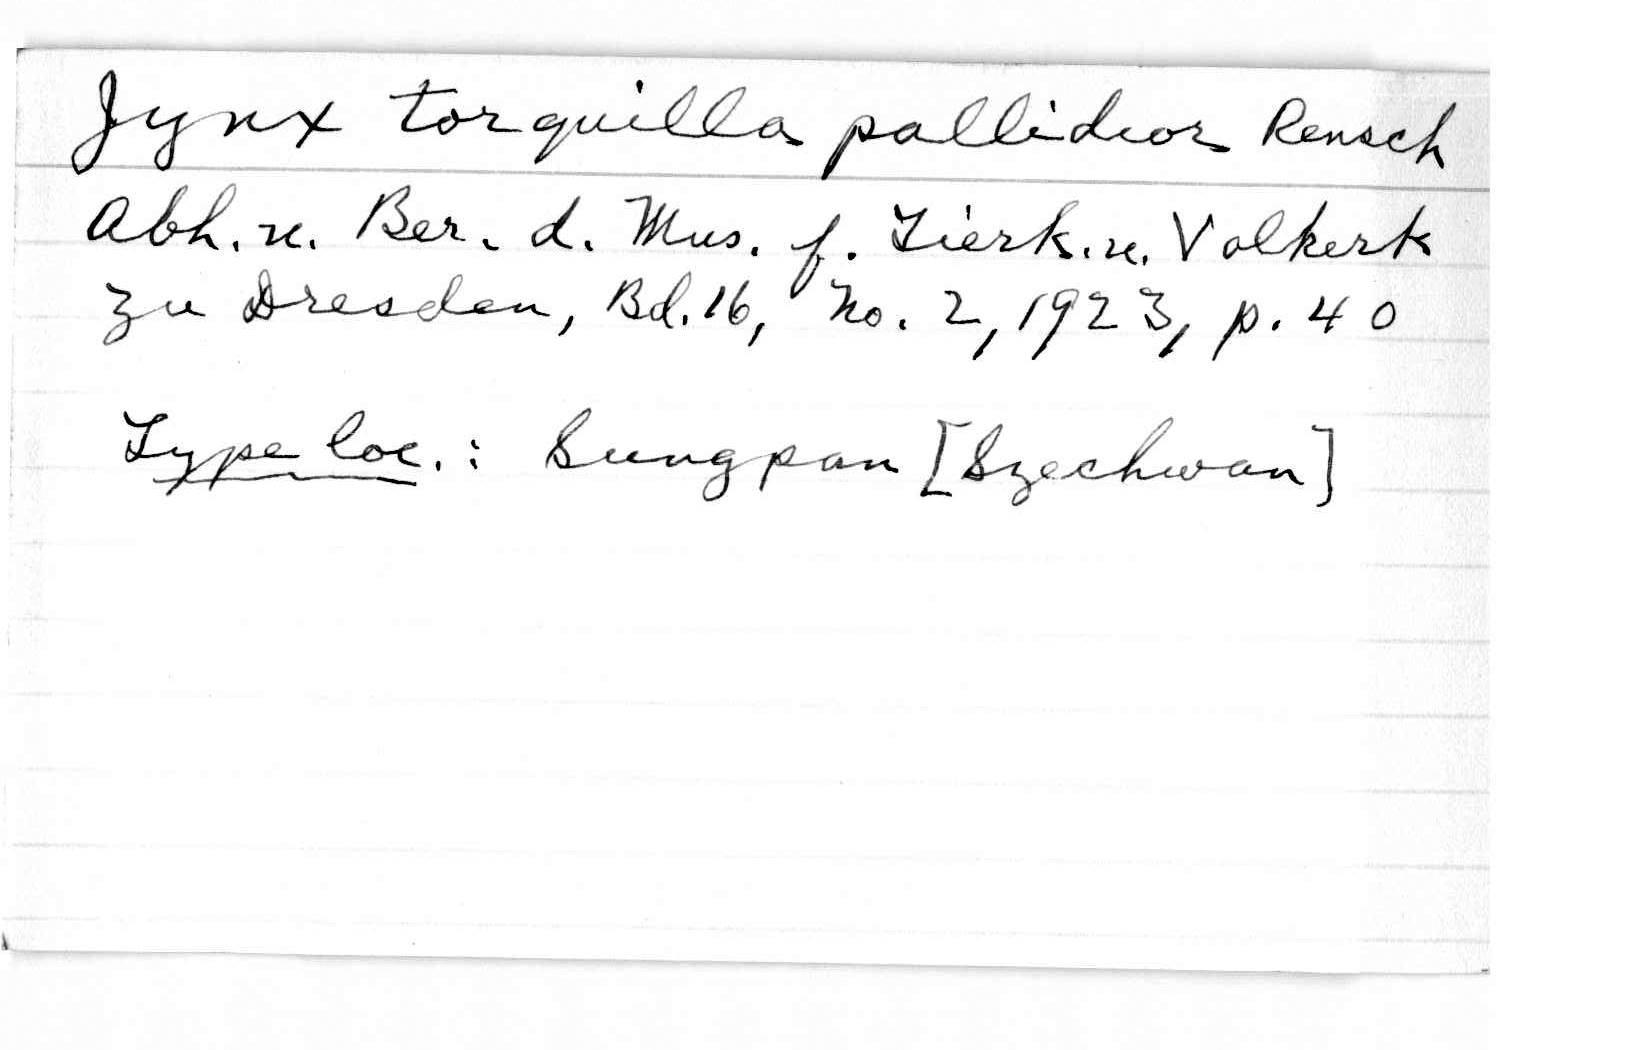 Jynx torquilla pallidior Rensch
Abh. u. Ber. d. Mus. f. Tierk. u. Volkerk
zu Dresden, Bd. 16, No. 2, 1923, p. 40
Type loc. : Sungpan [Szechwan]